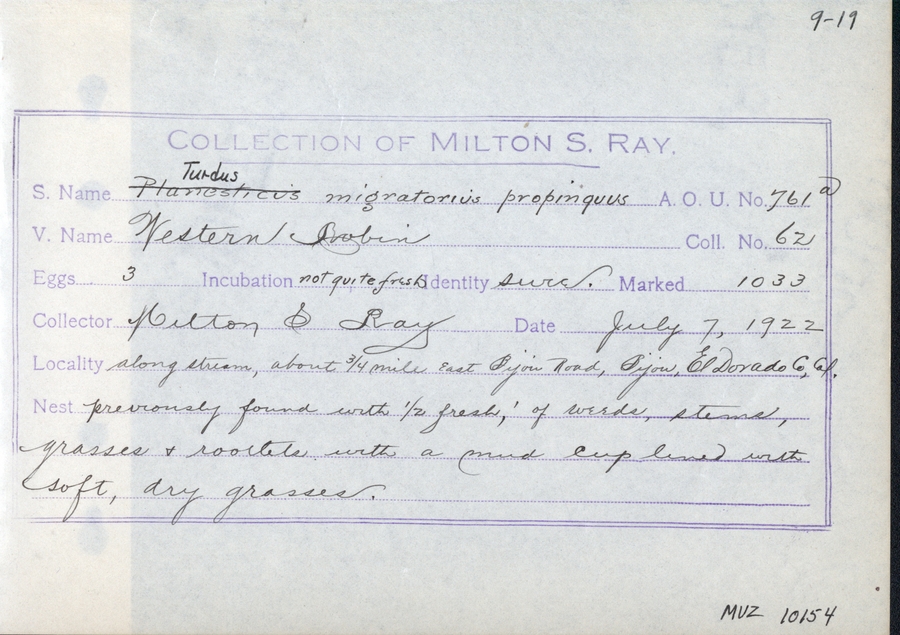 9-19
COLLECTION OF MILTON S. RAY.
Turdus
S. Name Planesticus migratorius propinquus A. O. U. No. 761a
V. Name Western Robin Coll. No. 62
Eggs 3 Incubation not quite fresh Identity sure. Marked 1033
Collector Milton S Ray Date July 7, 1922
Locality along stream, about 3/4 mile East Bijou Road, Bijou, El Dorado Co, Cal.
Nest previously found with '1/2 fresh,' of weeds, stems,
grasses & rootlets with a mud cup lined with
soft, dry grasses.
MVZ 10154